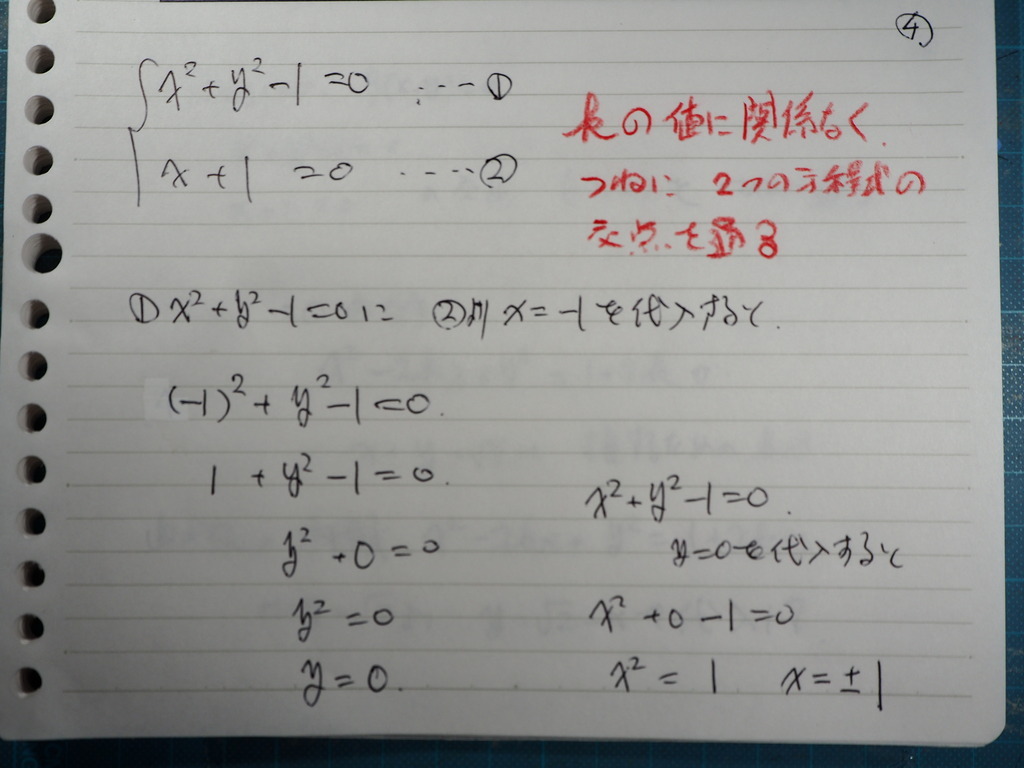 ④
x²+y²-1=0 ・・・・①
x+1=0 ・・・・②
kの値に関係なく
つねに 2つの方程式の
交点を通る
① x²+y²-1=0に ②より x=-1を代入すると
(-1)²+y²-1=0.
1+y²-1=0.
y²+0=0
y²=0
y=0.
x²+y²-1=0.
y=0を代入すると
x²+0-1=0
x²=1 x=±1